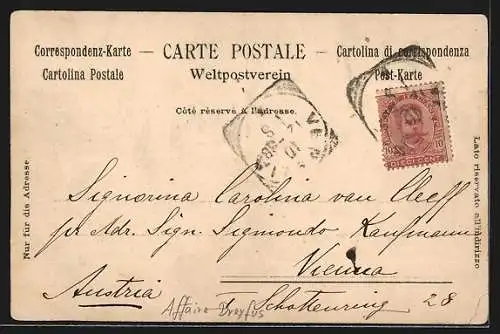 Correspondenz-Karte — CARTE POSTALE — Cartolina di corrispondenza
Cartolina Postale Weltpostverein Post-Karte
Côté réservé à l'adresse.
DIECI CENT. 10
Nur für die Adresse.
Lato riservato all'indirizzo
Signorina Carolina van Cleeff
pr Adr. Sign. Sigmondo Kaufmann
Vienna
Austria Schottenring 28
Affaire Dreyfus